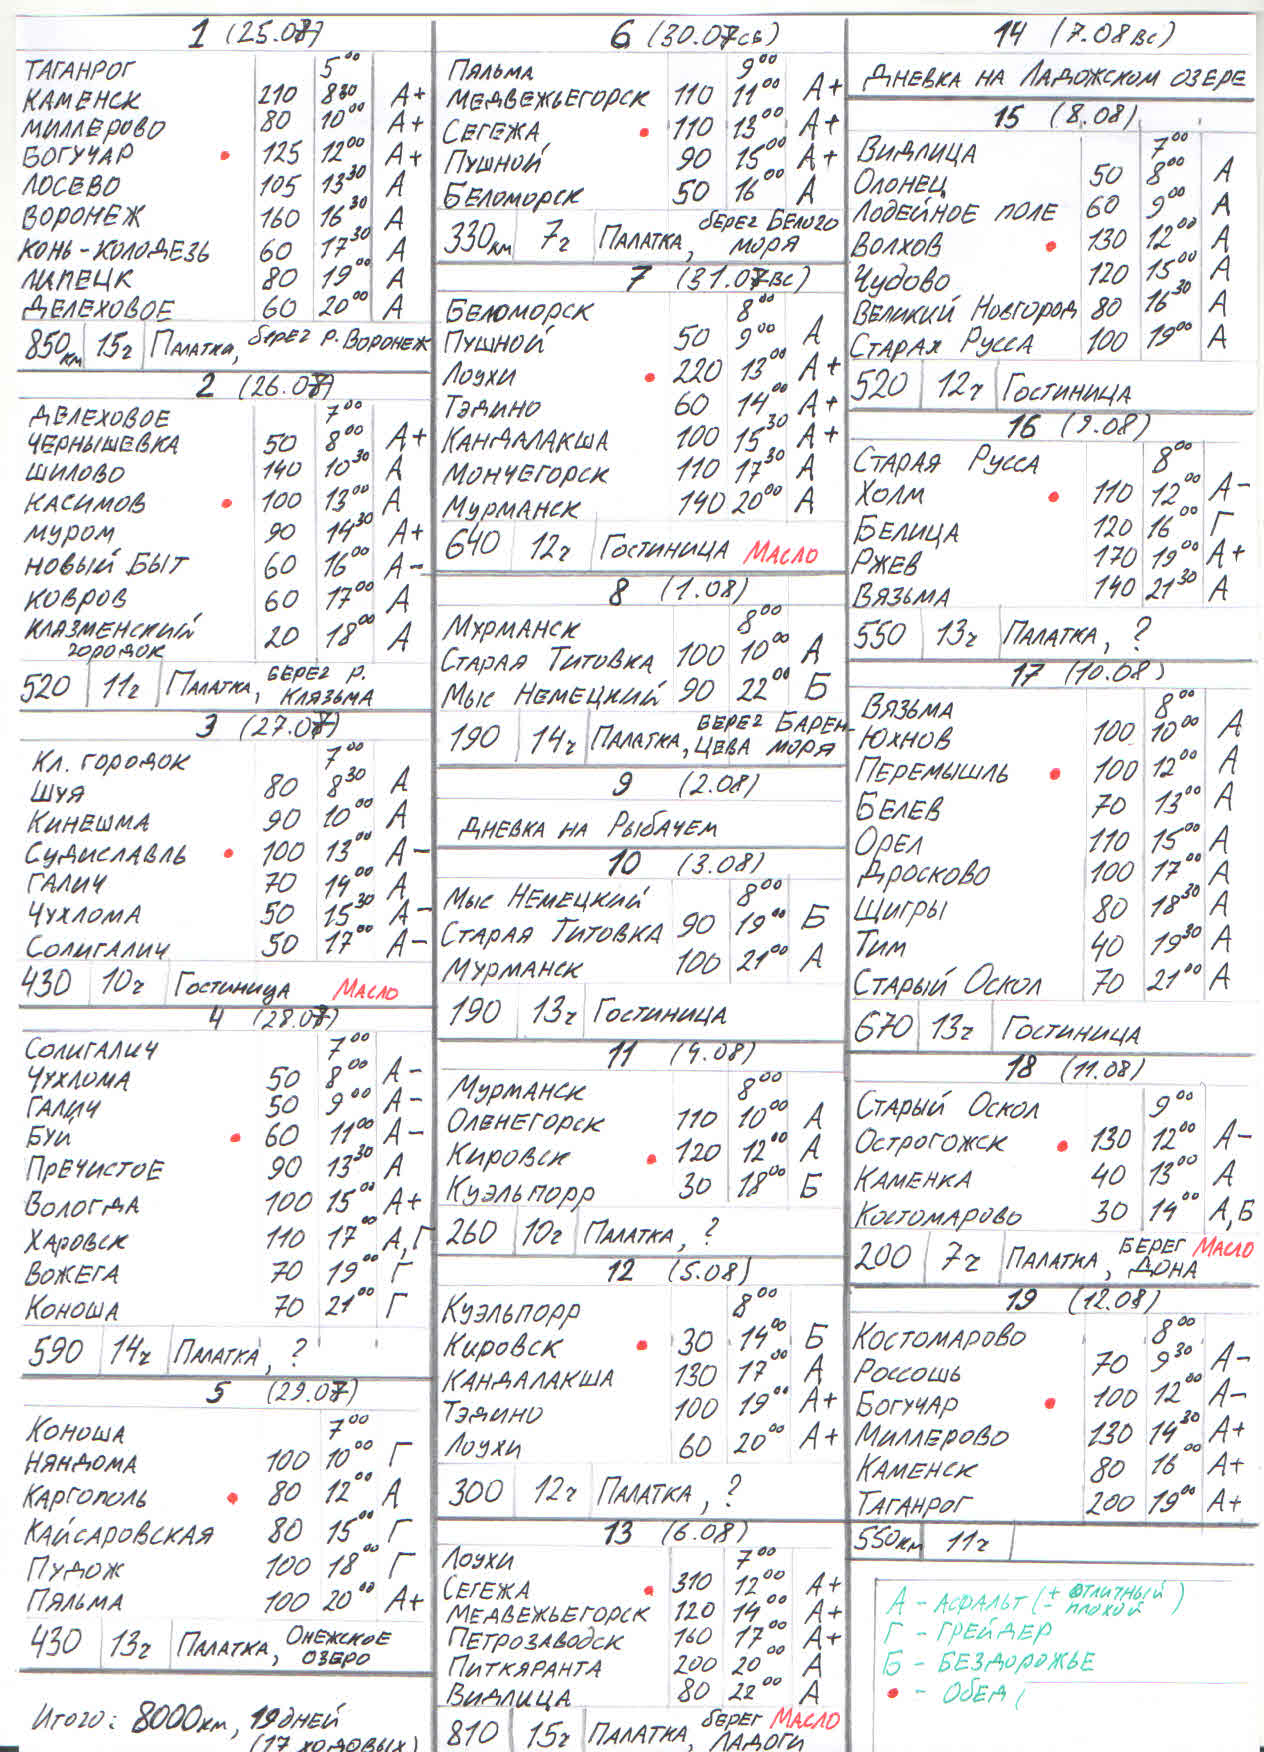 1 (25.07)
ТАГАНРОГ 5⁰⁰
КАМЕНСК 210 8³⁰ А+
МИЛЛЕРОВО 80 10⁰⁰ А+
БОГУЧАР • 125 12⁰⁰ А+
ЛОСЕВО 105 13³⁰ А
ВОРОНЕЖ 160 16³⁰ А
КОНЬ-КОЛОДЕЗЬ 60 17³⁰ А
ЛИПЕЦК 80 19⁰⁰ А
ДЕЛЕХОВОЕ 60 20⁰⁰ А
850 км 15ч ПАЛАТКА, берег р. ВОРОНЕЖ
2 (26.07)
ДЕЛЕХОВОЕ 7⁰⁰
ЧЕРНЫШЕВКА 50 8⁰⁰ А+
ШИЛОВО 140 10³⁰ А
КАСИМОВ • 100 13⁰⁰ А
МУРОМ 90 14³⁰ А+
НОВЫЙ БЫТ 60 16⁰⁰ А-
КОВРОВ 60 17⁰⁰ А
КЛЯЗМЕНСКИЙ
ГОРОДОК 20 18⁰⁰ А
520 11ч ПАЛАТКА, БЕРЕГ Р. КЛЯЗЬМА
3 (27.07)
КЛ. ГОРОДОК 7⁰⁰
ШУЯ 80 8³⁰ А
КИНЕШМА 90 10⁰⁰ А
СУДИСЛАВЛЬ • 100 13⁰⁰ А-
ГАЛИЧ 70 14⁰⁰ А
ЧУХЛОМА 50 15³⁰ А-
СОЛИГАЛИЧ 50 17⁰⁰ А-
430 10ч ГОСТИНИЦА МАСЛО
4 (28.07)
СОЛИГАЛИЧ 7⁰⁰
ЧУХЛОМА 50 8⁰⁰ А-
ГАЛИЧ 50 9⁰⁰ А-
БУЙ • 60 11⁰⁰ А-
ПРЕЧИСТОЕ 90 13³⁰ А
ВОЛОГДА 100 15⁰⁰ А+
ХАРОВСК 110 17⁰⁰ А,Г
ВОЖЕГА 70 19⁰⁰ Г
КОНОША 70 21⁰⁰ Г
590 14ч ПАЛАТКА, ?
5 (29.07)
КОНОША 7⁰⁰
НЯНДОМА 100 10⁰⁰ Г
КАРГОПОЛЬ • 80 12⁰⁰ А
КАЙСАРОВСКАЯ 80 15⁰⁰ Г
ПУДОЖ 100 18⁰⁰ Г
ПЯЛЬМА 100 20⁰⁰ А+
430 13ч ПАЛАТКА, ОНЕЖСКОЕ ОЗЕРО
ИТОГО: 8000км, 19 ДНЕЙ
(17 ХОДОВЫХ)
6 (30.07 сб)
ПЯЛЬМА 9⁰⁰
МЕДВЕЖЬЕГОРСК 110 11⁰⁰ А+
СЕГЕЖА • 110 13⁰⁰ А+
ПУШНОЙ 90 15⁰⁰ А+
БЕЛОМОРСК 50 16⁰⁰ А
330км 7ч ПАЛАТКА, берег БЕЛОГО МОРЯ
7 (31.07 ВС)
БЕЛОМОРСК 8⁰⁰
ПУШНОЙ 50 9⁰⁰ А
ЛОУХИ • 220 13⁰⁰ А+
ТЭДИНО 60 14⁰⁰ А+
КАНДАЛАКША 100 15³⁰ А+
МОНЧЕГОРСК 110 17³⁰ А
МУРМАНСК 140 20⁰⁰ А
640 12ч ГОСТИНИЦА МАСЛО
8 (1.08)
МУРМАНСК 8⁰⁰
СТАРАЯ ТИТОВКА 100 10⁰⁰ А
МЫС НЕМЕЦКИЙ 90 22⁰⁰ Б
190 14ч ПАЛАТКА, БЕРЕГ БАРЕН-
ЦЕВА МОРЯ
9 (2.08)
ДНЕВКА НА РЫБАЧЕМ
10 (3.08)
МЫС НЕМЕЦКИЙ 8⁰⁰
СТАРАЯ ТИТОВКА 90 19⁰⁰ Б
МУРМАНСК 100 21⁰⁰ А
190 13ч ГОСТИНИЦА
11 (4.08)
МУРМАНСК 8⁰⁰
ОЛЕНЕГОРСК 110 10⁰⁰ А
КИРОВСК • 120 12⁰⁰ А
КУЭЛЬПОРР 30 18⁰⁰ Б
260 10ч ПАЛАТКА, ?
12 (5.08)
КУЭЛЬПОРР 8⁰⁰
КИРОВСК • 30 14⁰⁰ Б
КАНДАЛАКША 130 17⁰⁰ А
ТЭДИНО 100 19⁰⁰ А+
ЛОУХИ 60 20⁰⁰ А+
300 12ч ПАЛАТКА, ?
13 (6.08)
ЛОУХИ 7⁰⁰
СЕГЕЖА • 310 12⁰⁰ А+
МЕДВЕЖЬЕГОРСК 120 14⁰⁰ А+
ПЕТРОЗАВОДСК 160 17⁰⁰ А+
ПИТКЯРАНТА 200 20⁰⁰ А
ВИДЛИЦА 80 22⁰⁰ А
810 15ч ПАЛАТКА, берег ЛАДОГИ МАСЛО
14 (7.08 ВС)
ДНЕВКА НА ЛАДОЖСКОМ ОЗЕРЕ
15 (8.08)
ВИДЛИЦА 7⁰⁰
ОЛОНЕЦ 50 8⁰⁰ А
ЛОДЕЙНОЕ ПОЛЕ 60 9⁰⁰ А
ВОЛХОВ • 130 12⁰⁰ А
ЧУДОВО 120 15⁰⁰ А
ВЕЛИКИЙ НОВГОРОД 80 16³⁰ А
СТАРАЯ РУССА 100 19⁰⁰ А
520 12ч ГОСТИНИЦА
16 (9.08)
СТАРАЯ РУССА 8⁰⁰
ХОЛМ • 110 12⁰⁰ А-
БЕЛИЦА 120 16⁰⁰ Г
РЖЕВ 170 19⁰⁰ А+
ВЯЗЬМА 140 21³⁰ А
550 13ч ПАЛАТКА, ?
17 (10.08)
ВЯЗЬМА 8⁰⁰
ЮХНОВ 100 10⁰⁰ А
ПЕРЕМЫШЛЬ • 100 12⁰⁰ А
БЕЛЕВ 70 13⁰⁰ А
ОРЕЛ 110 15⁰⁰ А
ДРОСКОВО 100 17⁰⁰ А
ЩИГРЫ 80 18³⁰ А
ТИМ 40 19³⁰ А
СТАРЫЙ ОСКОЛ 70 21⁰⁰ А
670 13ч ГОСТИНИЦА
18 (11.08)
СТАРЫЙ ОСКОЛ 9⁰⁰
ОСТРОГОЖСК • 130 12⁰⁰ А-
КАМЕНКА 40 13⁰⁰ А
КОСТОМАРОВО 30 14⁰⁰ А,Б
200 7ч ПАЛАТКА, БЕРЕГ ДОНА МАСЛО
19 (12.08)
КОСТОМАРОВО 8⁰⁰
РОССОШЬ 70 9³⁰ А-
БОГУЧАР • 100 12⁰⁰ А-
МИЛЛЕРОВО 130 14³⁰ А+
КАМЕНСК 80 16⁰⁰ А+
ТАГАНРОГ 200 19⁰⁰ А+
550км 11ч
А - АСФАЛЬТ (+ ОТЛИЧНЫЙ
- ПЛОХОЙ)
Г - ГРЕЙДЕР
Б - БЕЗДОРОЖЬЕ
• - ОБЕД